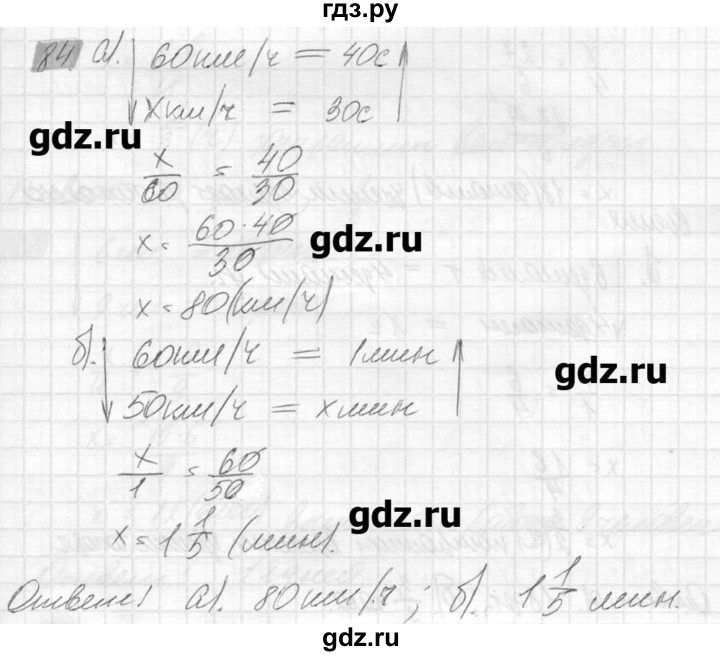 гдз.ру
84 а). 60км/ч = 40с
x км/ч = 30с
gdz.ru
x/60 = 40/30
x = 60·40/30
gdz.ru
x = 80(км/ч)
б). 60км/ч = 1мин
50км/ч = x мин
gdz.ru
x/1 = 60/50
gdz.ru
x = 1 1/5 (мин).
gdz.ru
Ответ: а). 80км/ч; б). 1 1/5 мин.
гдз.ру